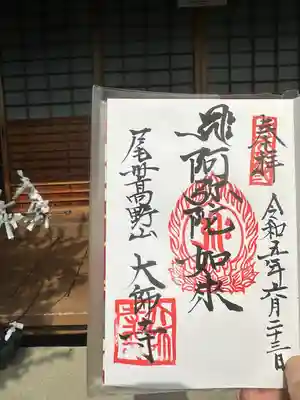 奉拝
令和五年五月二十三日
阿弥陀如来
尾張高野山 大師寺